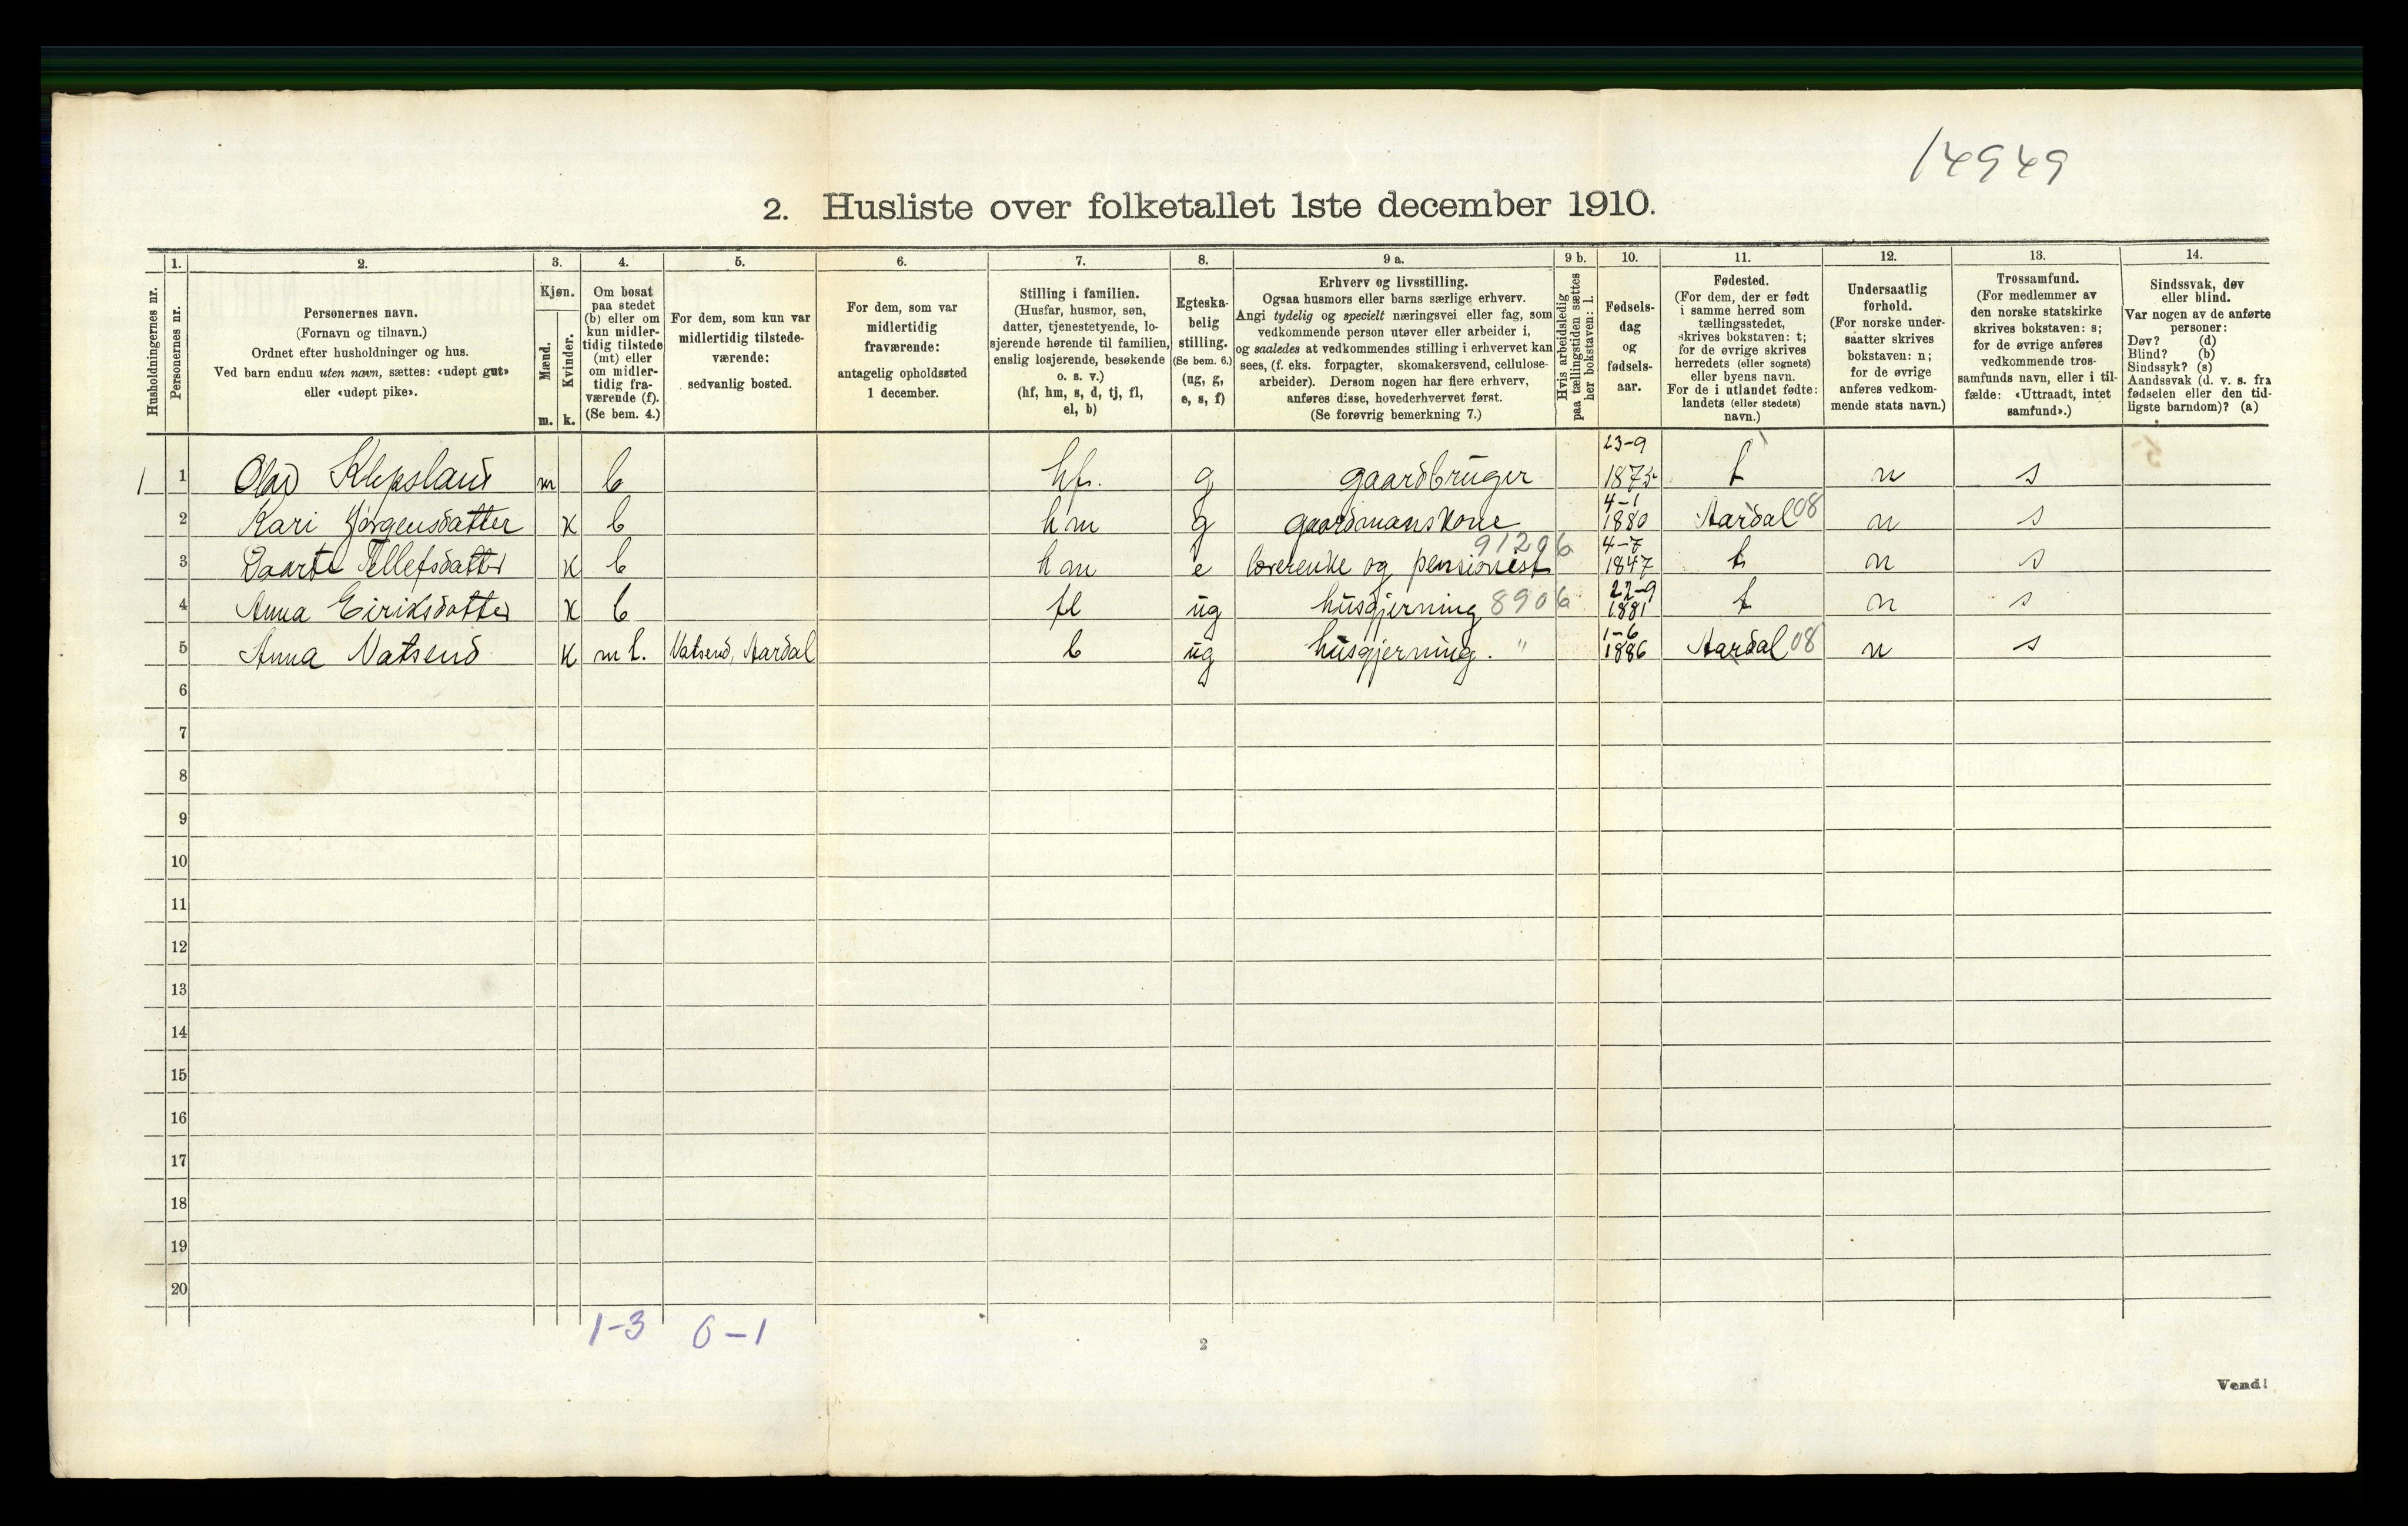 14949
2. Husliste over folketallet 1ste december 1910.
Husholdningernes nr.
1.
Personernes nr.
2.
Personernes navn.
(Fornavn og tilnavn.)
Ordnet efter husholdninger og hus.
Ved barn endnu uten navn, sættes: «udøpt gut»
eller «udøpt pike».
3.
Kjøn.
Mænd.
m.
Kvinder.
k.
4.
Om bosat
paa stedet
(b) eller om
kun midler-
tidig tilstede
(mt) eller
om midler-
tidig fra-
værende (f).
(Se bem. 4.)
5.
For dem, som kun var
midlertidig tilstede-
værende:
sedvanlig bosted.
6.
For dem, som var
midlertidig
fraværende:
antagelig opholdssted
1 december.
7.
Stilling i familien.
(Husfar, husmor, søn,
datter, tjenestetyende, lo-
sjerende hørende til familien,
enslig losjerende, besøkende
o. s. v.)
(hf, hm, s, d, tj, fl,
el, b)
8.
Egteska-
belig
stilling.
(Se bem. 6.)
(ug, g,
e, s, f)
9 a.
Erhverv og livsstilling.
Ogsaa husmors eller barns særlige erhverv.
Angi tydelig og specielt næringsvei eller fag, som
vedkommende person utøver eller arbeider i,
og saaledes at vedkommendes stilling i erhvervet kan
sees, (f. eks. forpagter, skomakersvend, cellulose-
arbeider). Dersom nogen har flere erhverv,
anføres disse, hovederhvervet først.
(Se forøvrig bemerkning 7.)
9 b.
Hvis arbeidsledig
paa tællingstiden sættes
her bokstaven: l.
10.
Fødsels-
dag
og
fødsels-
aar.
11.
Fødested.
(For dem, der er født
i samme herred som
tællingsstedet,
skrives bokstaven: t;
for de øvrige skrives
herredets (eller sognets)
eller byens navn.
For de i utlandet fødte:
landets (eller stedets)
navn.)
12.
Undersaatlig
forhold.
(For norske under-
saatter skrives
bokstaven: n;
for de øvrige
anføres vedkom-
mende stats navn.)
13.
Trossamfund.
(For medlemmer av
den norske statskirke
skrives bokstaven: s;
for de øvrige anføres
vedkommende tros-
samfunds navn, eller i til-
fælde: «Uttraadt, intet
samfund».)
14.
Sindssvak, døv
eller blind.
Var nogen av de anførte
personer:
Døv? (d)
Blind? (b)
Sindssyk? (s)
Aandssvak (d. v. s. fra
fødselen eller den tid-
ligste barndom)? (a)
1 1 Olav Klepsland m b hf. g gaardbruger 23-9 1875 t n s
2 Kari Jørgensdatter k b hm g gaardmanskone 4-1 1880 Aardal 08 n s
3 Tellefsdatter k b hm e og pensionist 91296 4-7 1847 t n s
4 Anna Eiriksdatter k b fl ug husgjerning 8906 22-9 1881 t n s
5 Anna Natsend k mt. Vatsend, Aardal b ug husgjerning. " 1-6 1886 Aardal 08 n s
6
7
8
9
10
11
12
13
14
15
16
17
18
19
20
1-3 0-1
2
Vend!